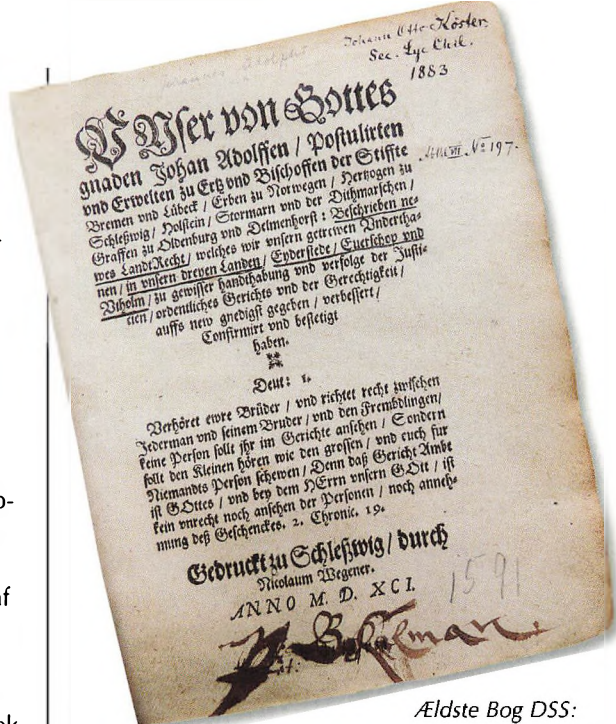 Johann Otto Köster.
Sec. Lyc Chil.
1883
Johannes Adolphi
VNser von Gottes
gnaden Johan Adolffen / Postulirten
und Erwelten zu Ertz vnd Bischoffen der Stiffte
Bremen vnd Lübeck / Erben zu Norwegen / Hertzogen zu
Schleßwig / Holstein / Stormarn vnd der Dithmarschen /
Graffen zu Oldenburg vnd Delmenhorst : Beschrieben ne-
wes LandtRecht / welches wir vnsern getrewen Vndertha-
nen / in vnsern dreyen Landen / Eyderstede / Euerschop vnd
Vtholm / zu gewisser handthabung vnd verfolge der Justi-
cien / ordentliches Gerichts vnd der Gerechtigkeit /
auffs new gnedigst gegeben / verbessert /
Confirmirt vnd bestetigt
haben.
№ 197.
Deut: 1.
Verhöret ewre Brüder / vnd richtet recht zwischen
Jederman vnd seinem Bruder / vnd den Frembdlingen /
keine Person solle jhr im Gerichte ansehen / Sondern
sollt den Kleinen hören wie den grossen / vnd euch für
Niemandts Person schewen / Denn daß Gericht Ambt
ist GOttes / vnd bey dem HErrn vnsern GOtt / ist
kein vnrecht noch ansehen der Personen / noch anneh-
mung deß Geschenckes. 2. Chronic. 19.
Gedruckt zu Schleßwig / durch
Nicolaum Wegener.
ANNO M. D. XCI.
1591
Ældste Bog DSS:
o-
af
ek